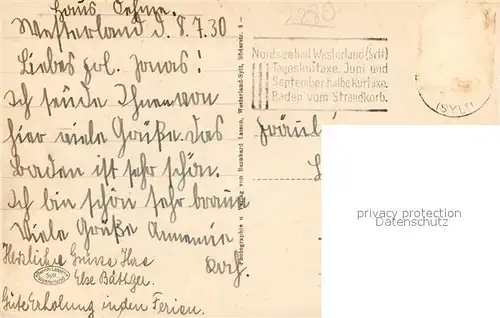 Haus Oehme.
Westerland d. 8.7.30
Liebes Frl. Jonas!
Ich sende Ihnen von
hier viele Grüße. Das
Baden ist sehr schön.
Ich bin schön sehr braun
Viele Grüße Annemie
Koch.
Herzliche Grüsse Ihre
Else Büttger.
Gute Erholung in den Ferien.
Nordseebad Westerland (Sylt)
Tageskurtaxe. Juni und
September halbe Kurtaxe.
Baden vom Strandkorb.
(SYLT)
Fräul
Photographie u. Verlag von Bernhard Lassen, Westerland-Sylt, Süderstr. 8
privacy protection
Datenschutz